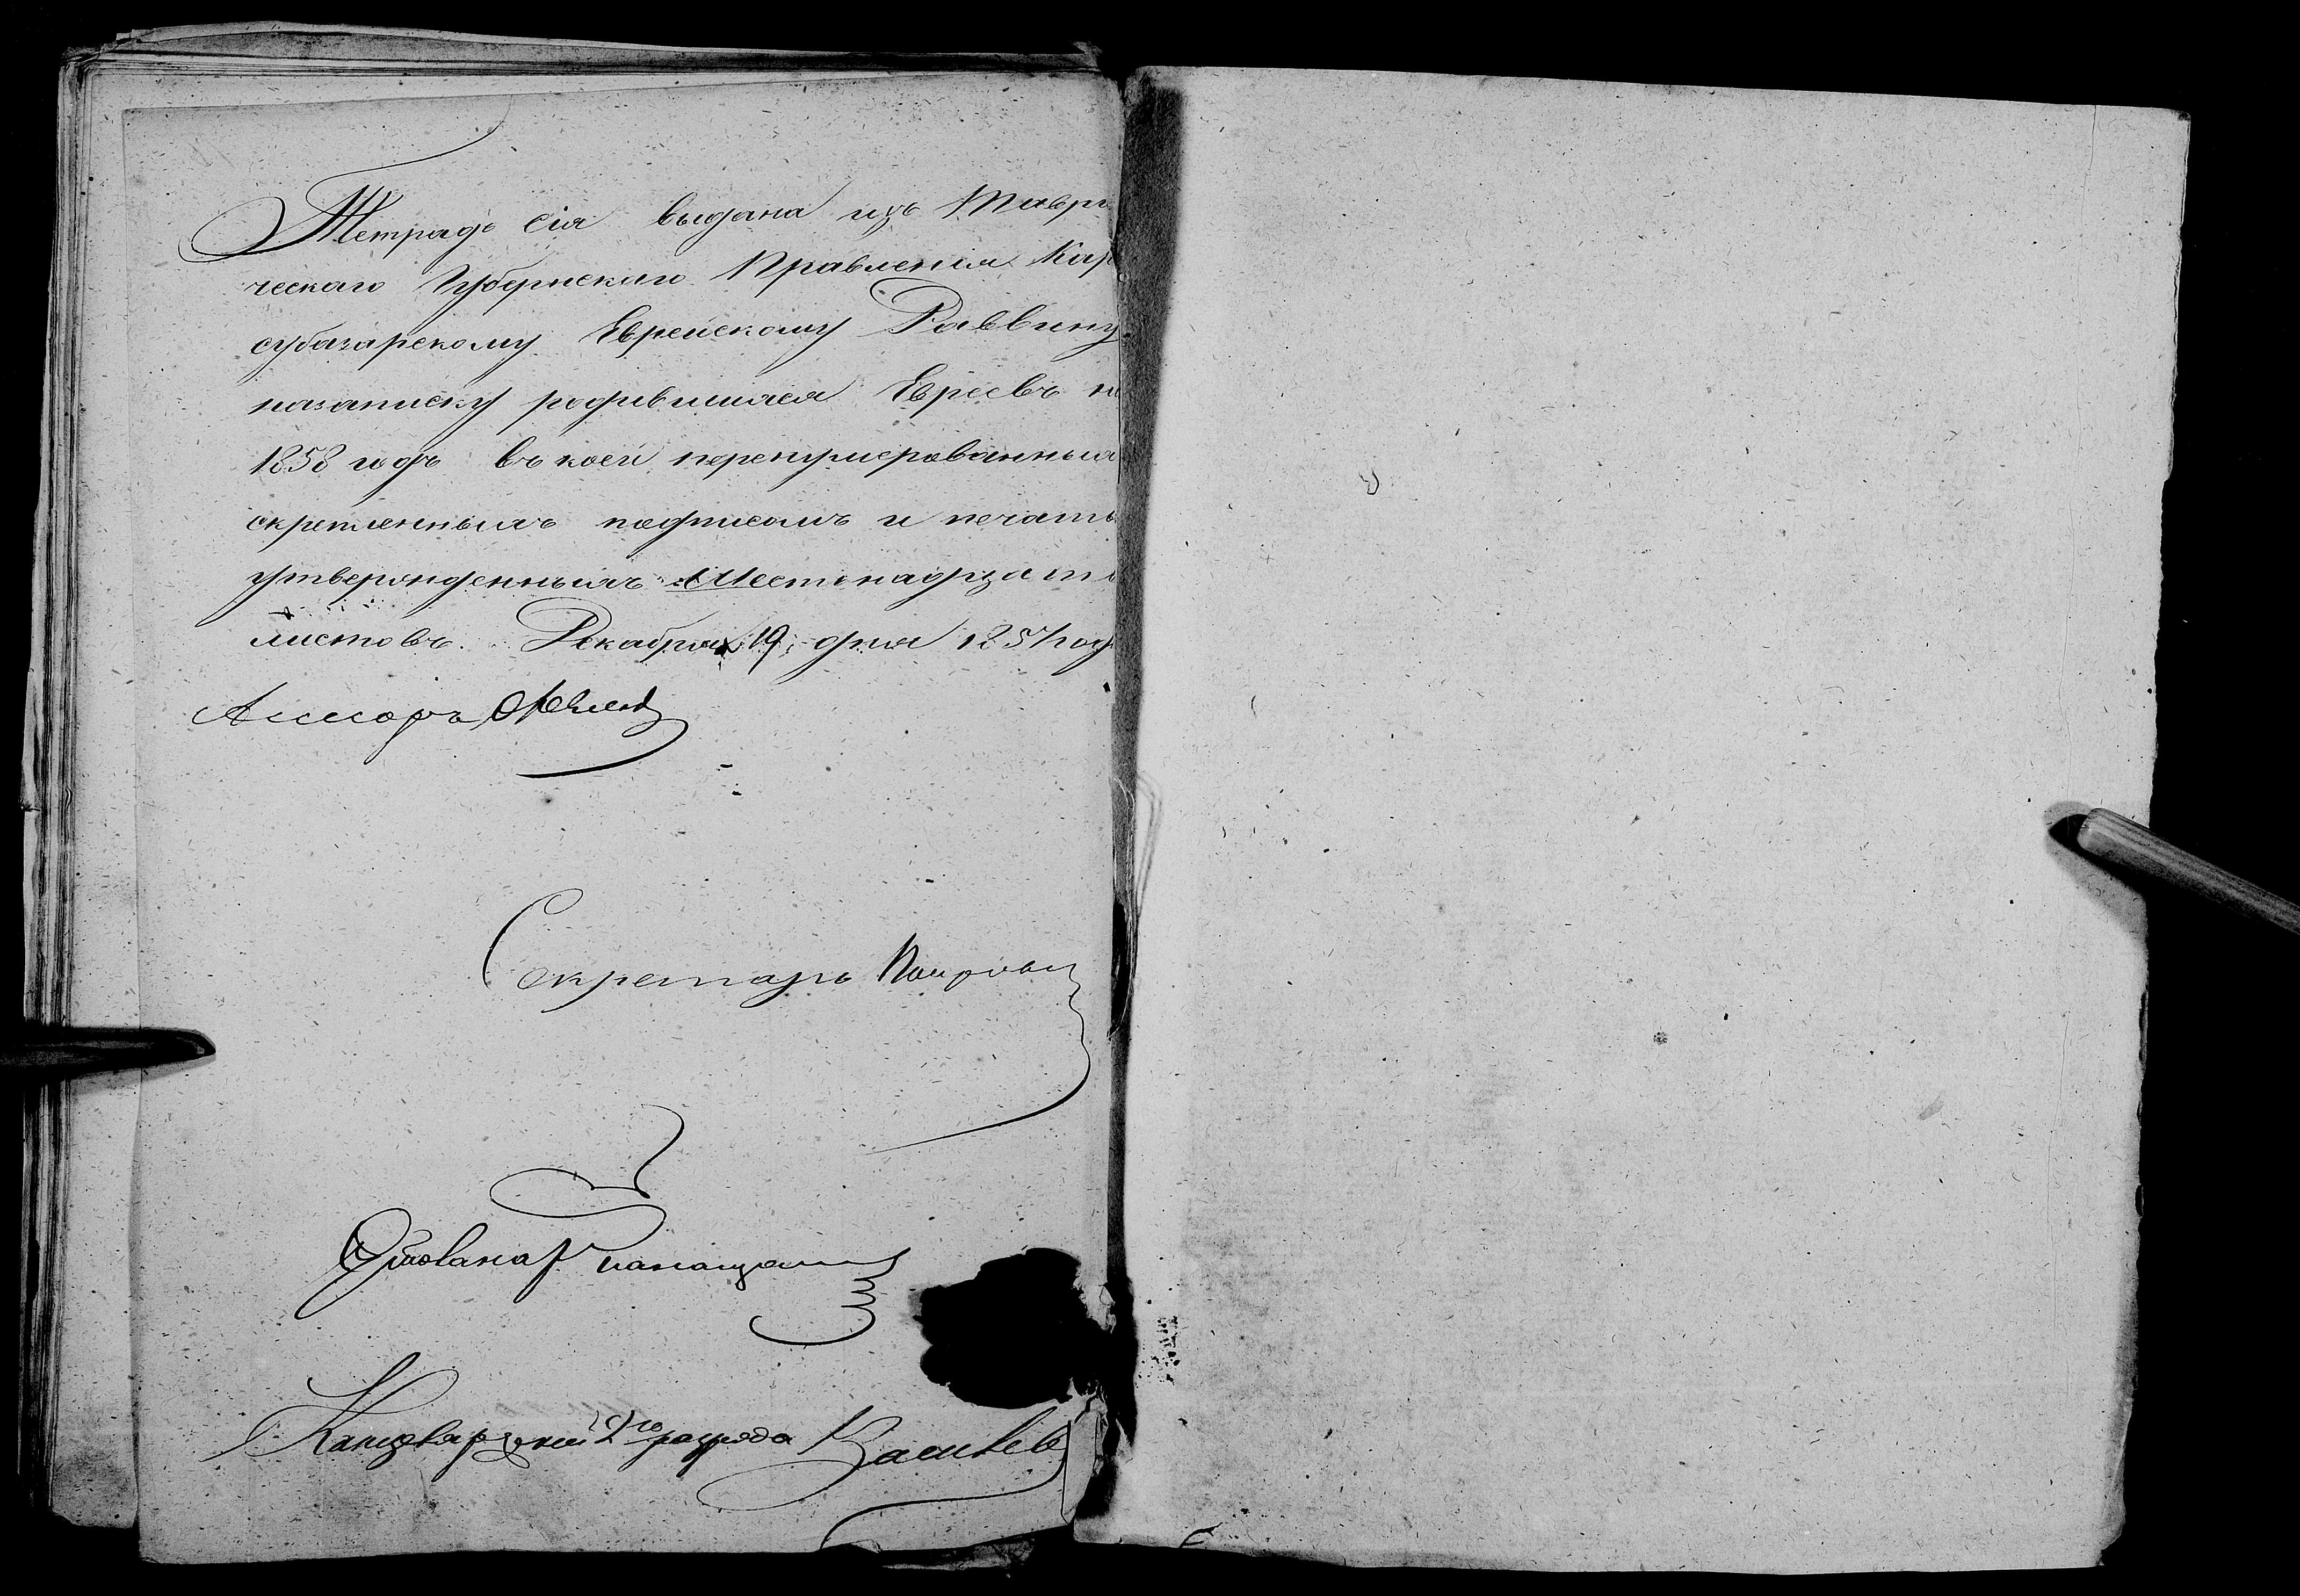 Тетрадь сія выдана изъ Таври
ческаго Губернскаго Правленія Кар
субазарскому Еврейскому Раввину
назаписку родившихся Евреевъ на
1858 годъ въ коей перенумерованныхъ
скрепленныхъ подписомъ и печатью
утвержденныхъ Шестнадцать
листовъ. Декабря 19 дня 1857 год
Ассесоръ
Секретарь
Канцелярской 2го разряда